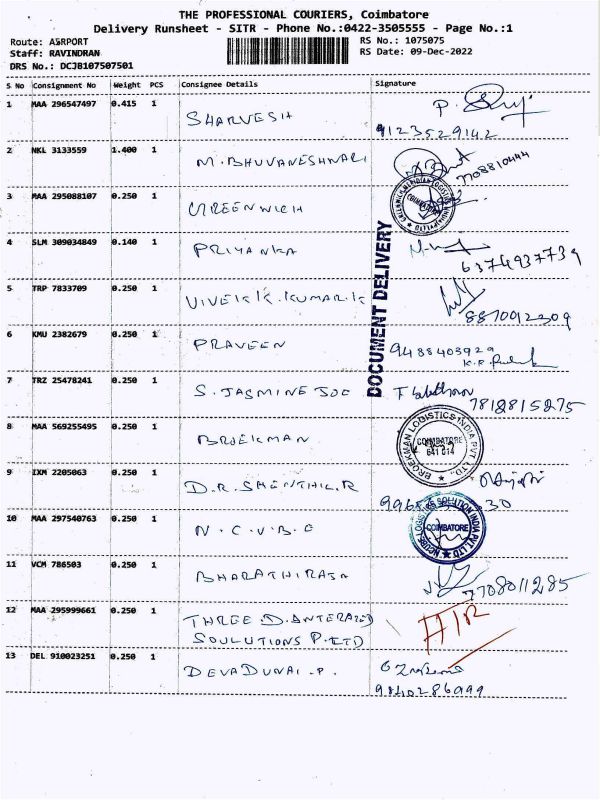 THE PROFESSIONAL COURIERS, Coimbatore
Delivery Runsheet - SITR - Phone No.:0422-3505555 - Page No.:1
Route: AIRPORT
RS No.: 1075075
Staff: RAVINDRAN
RS Date: 09-Dec-2022
DRS No.: DCJB107507501
S No Consignment No Weight PCS Consignee Details Signature
1 MAA 296547497 0.415 1 SHARVESH
9123529142
2 NKL 3133559 1.400 1 M.BHUVANESHWARI
3 MAA 295088107 0.250 1 GREENWICH
COIMBATORE
4 SLM 309034849 0.140 1 PRIYANKA
6374937739
5 TRP 7833709 0.250 1 VIVEIK K.KUMAR.K
8870092309
DOCUMENT DELIVERY
6 KMU 2382679 0.250 1 PRAVEEN 9488403929
7 TRZ 25478241 0.250 1 S.JASMINE JOE
7812815275
8 MAA 569255495 0.250 1 BROEKMAN
BROEKMAN LOGISTICS INDIA PVT. LTD.
COIMBATORE
641 014
9 IXM 2205063 0.250 1 D.R.SHENTHIL.R
10 MAA 297540763 0.250 1 N.C.U.B.E
NCUBE LOGISTICS SOLUTION INDIA PVT LTD
COIMBATORE
11 VCM 786503 0.250 1 BHARATHIRAJA
7708011285
12 MAA 295999661 0.250 1 THREE.D.INTERAZED
SOULUTIONS P.LTD
13 DEL 910023251 0.250 1 DEVADURAI.P.